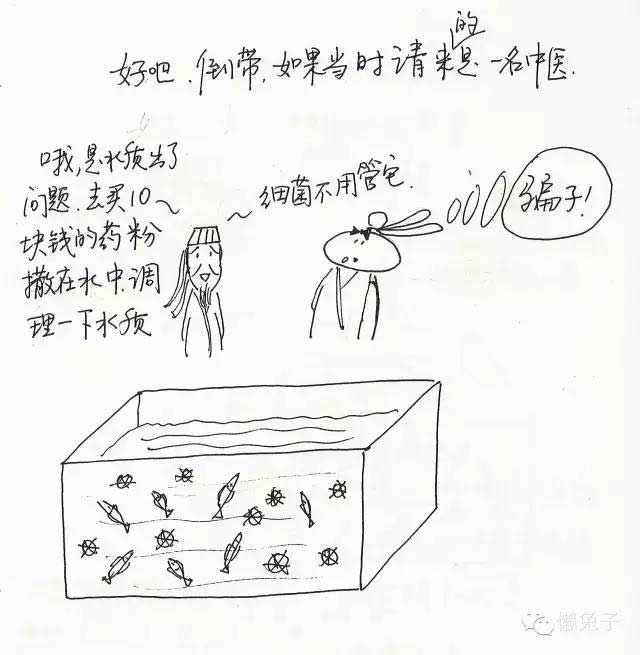 好吧.倒带.如果当时请来的是一名中医.
哦,是水质出了
问题.去买10
块钱的药粉
撒在水中.调
理一下水质
细菌不用管它.
骗子!
懒兔子